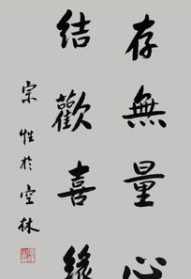 存無量心
結歡喜緣
宗性於空林